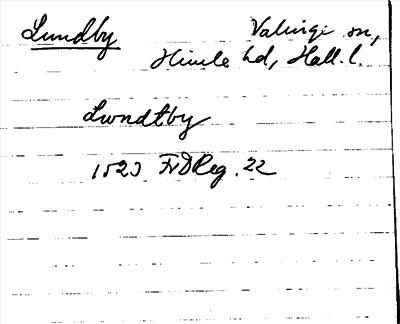 Lundby Valinge sn,
Himle hd, Hall. l.
Lwndtby
1523 FrDReg. 22